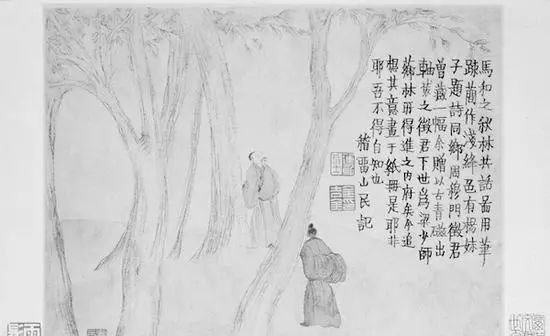 馬和之秋林共話啚用筆
踈簡作淺絳色有楊妹
子題詩同鄉周穆門徵君
曾藏一幅余贈以古青磁出
軸裝之徵君下世爲梁少師
薌林所得進之內府矣今追
想其意畫于紙冊是耶非
耶吾不得自知也
稽畱山民記